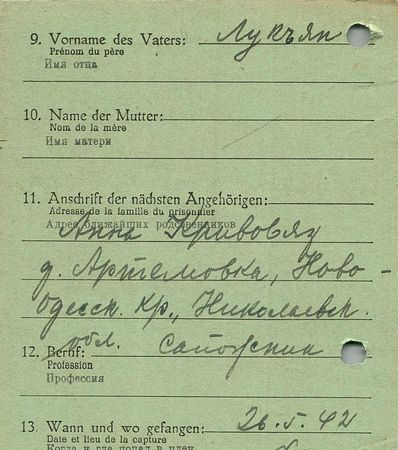 9. Vorname des Vaters: Лукъян
Prénom du père
Имя отца
10. Name der Mutter:
Nom de la mère
Имя матери
11. Anschrift der nächsten Angehörigen:
Adresse de la famille du prisonnier
Адрес ближайших родственников
Анна Кривовяз
д. Артемовка, Ново-
одесск. кр., Николаевск.
обл.
12. Beruf: сапожник
Profession
Профессия
13. Wann und wo gefangen: 26.5.42
Date et lieu de la capture
Когда и где попал в плен